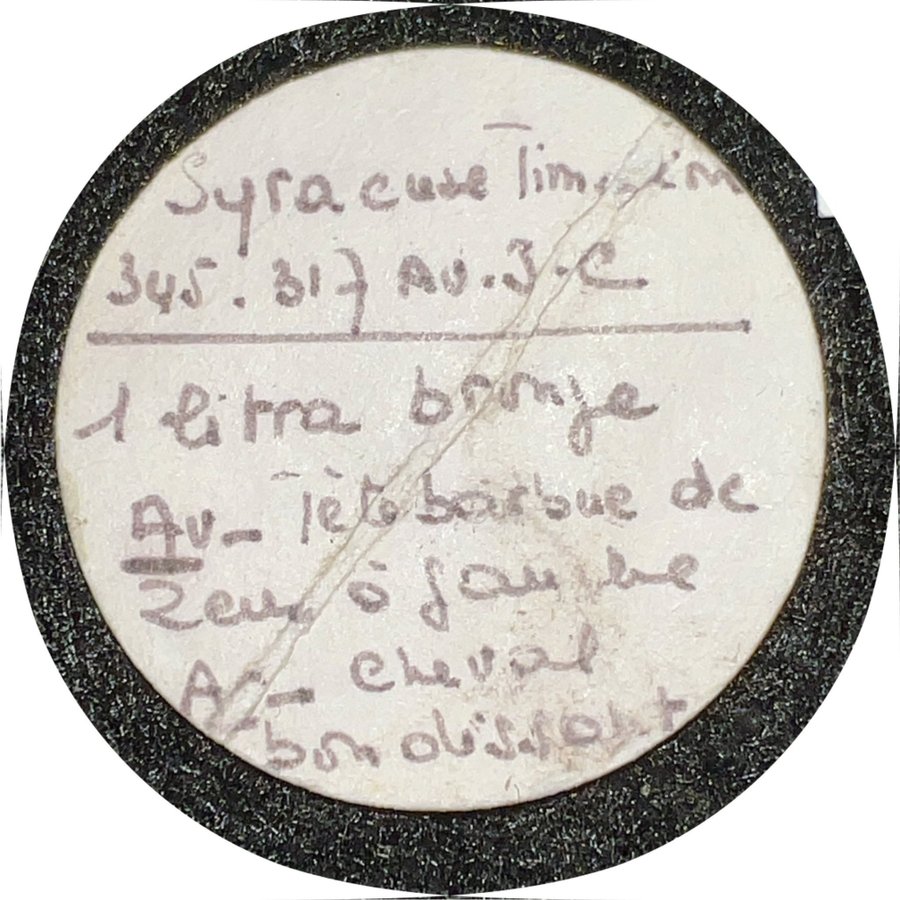 Syracuse Timoléon
345.317 Av.J.C
1 litra bronze
Av- Tête barbue de
Zeus à gauche
Ar- cheval
bondissant